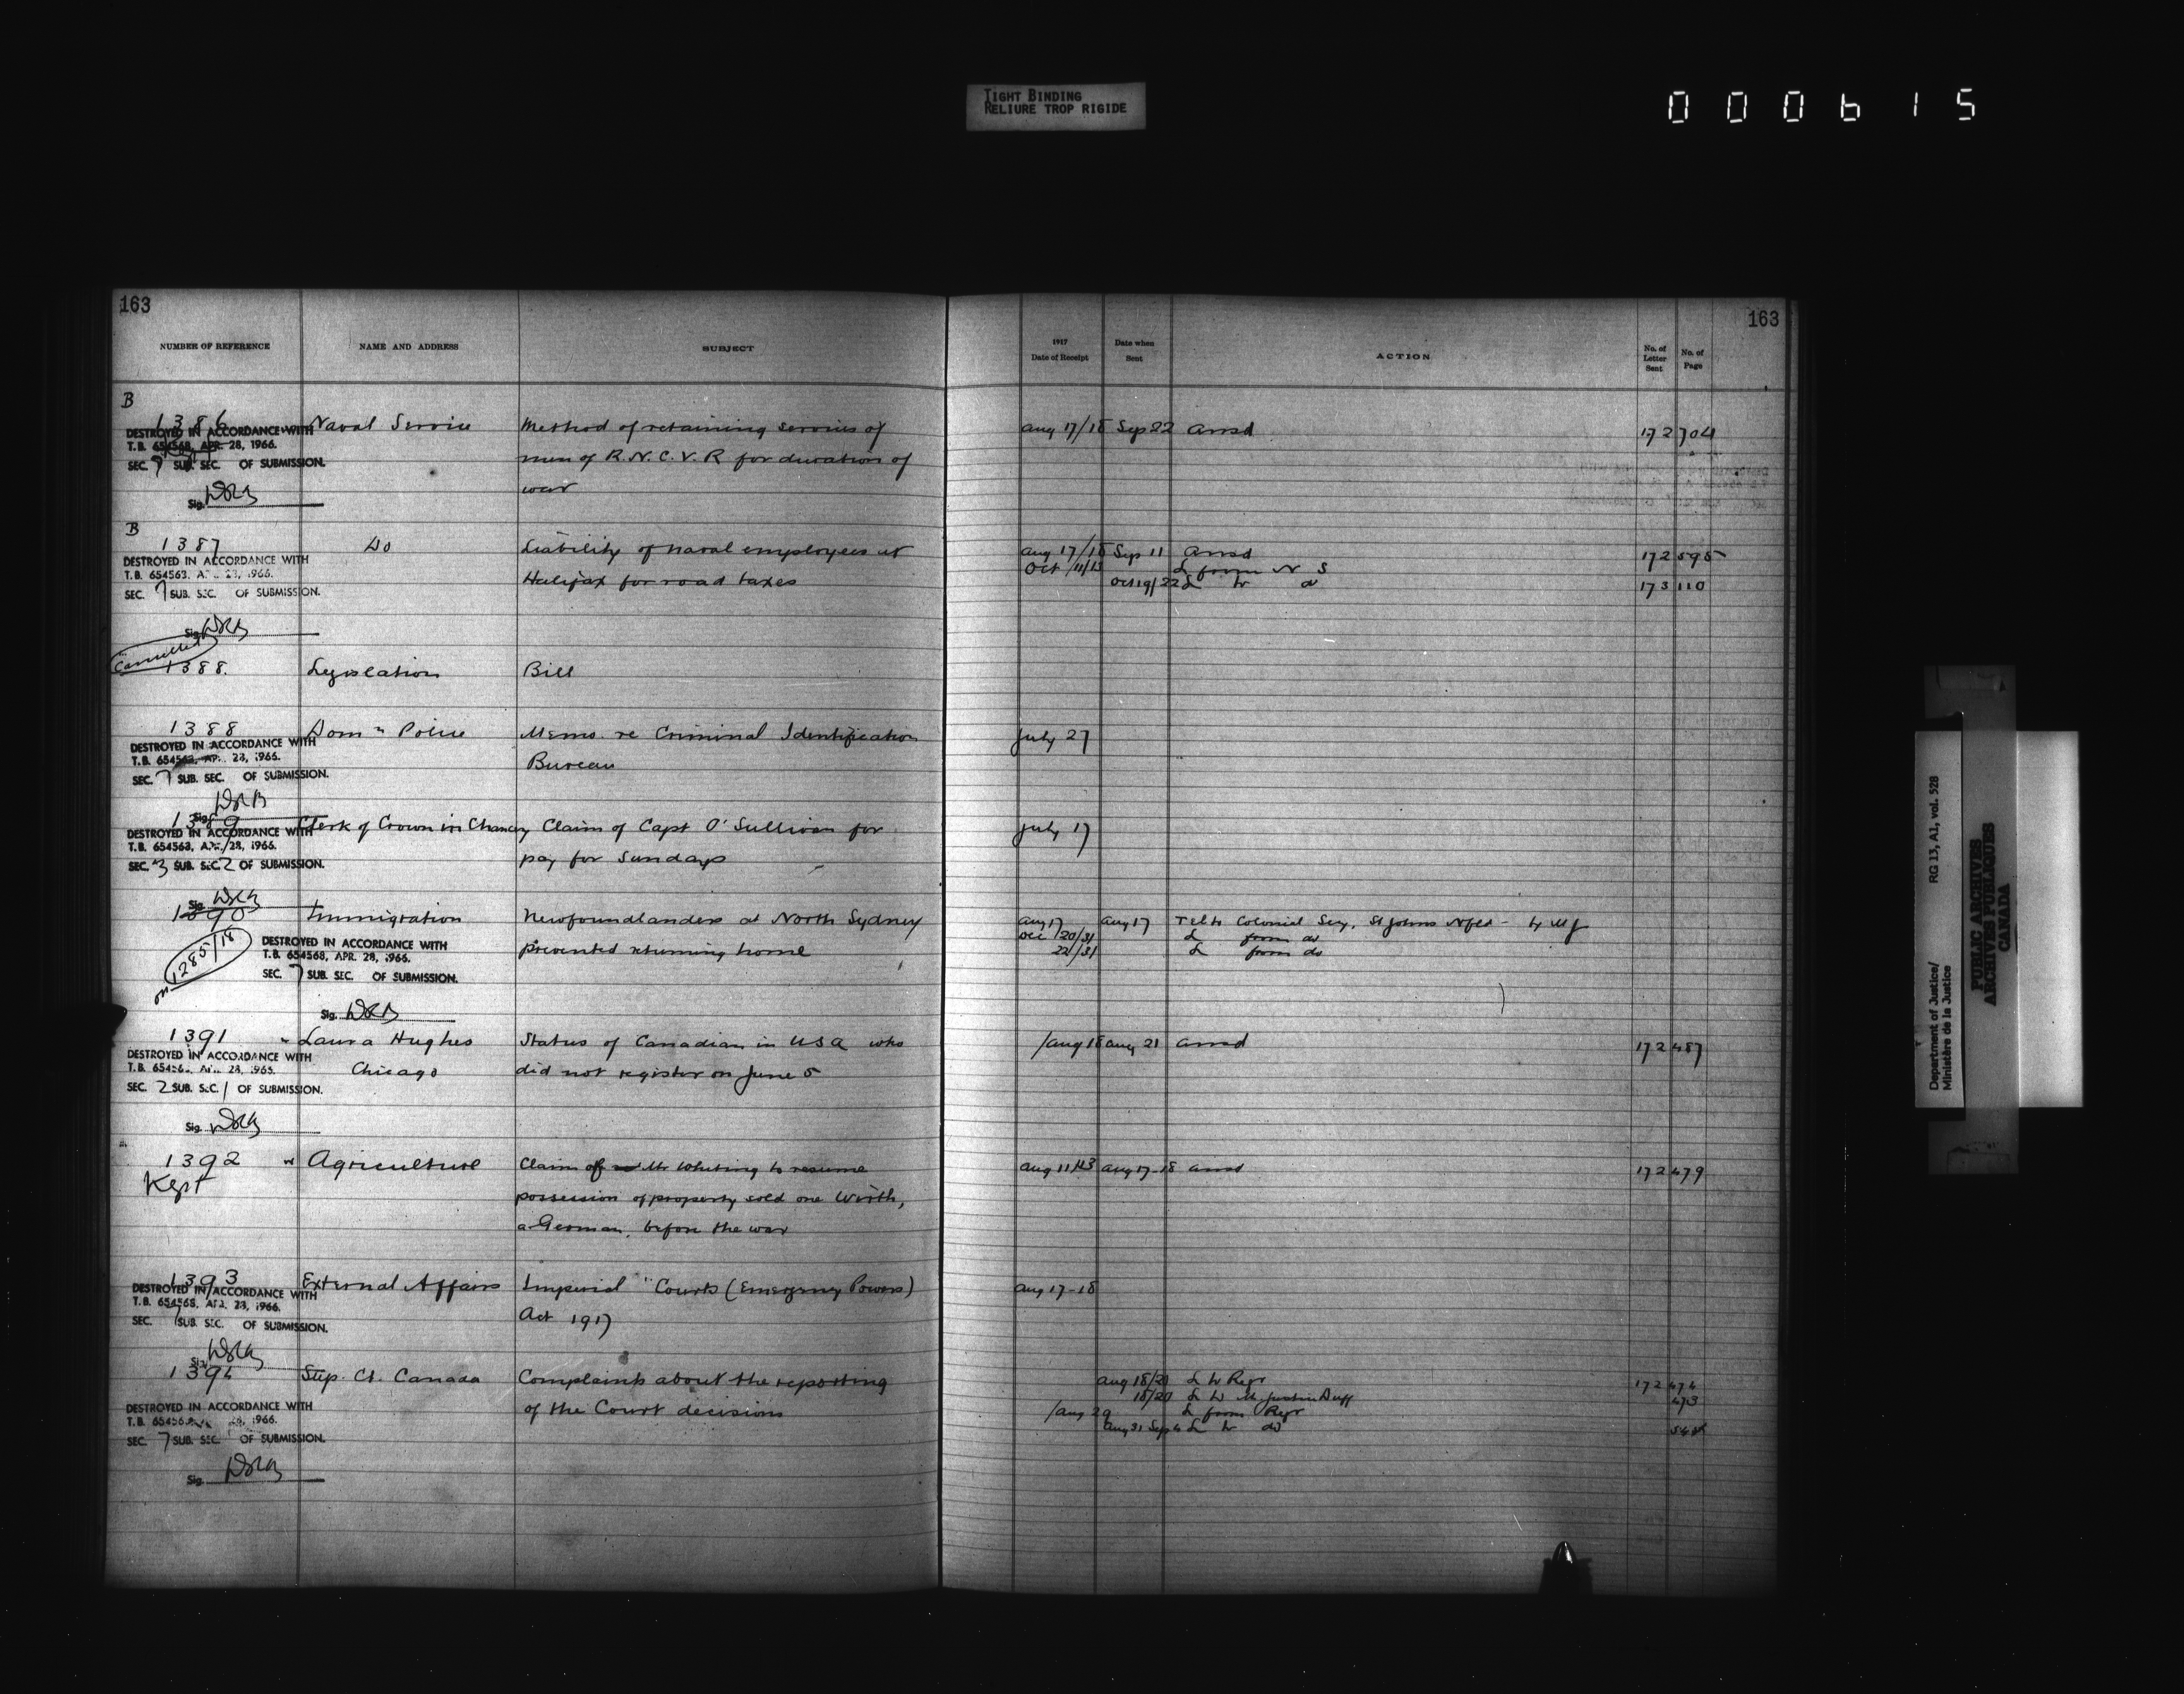 TIGHT BINDING
RELIURE TROP RIGIDE
000615
163
163
NUMBER OF REFERENCE NAME AND ADDRESS SUBJECT 1917 Date of Receipt Date when Sent ACTION No. of Letter Sent No. of Page
B
1386 Naval Service Method of retaining services of Aug 17/18 Sep 22 Ansd 172 704
DESTROYED IN ACCORDANCE WITH
T.B. 654568, APR. 28, 1966.
men of R.N.C.V.R for duration of
SEC. 7 SUB. SEC. OF SUBMISSION.
war
Sig.
B
1387 Do Liability of naval employees at Aug 17/18 Sep 11 Ansd 172 595
DESTROYED IN ACCORDANCE WITH
Oct 11/13 L from N S
T.B. 654563, 28, 1966.
Halifax for road taxes Oct 19/22 L to do 173 110
SEC. 7 SUB. SEC. OF SUBMISSION.
Sig.
Cancelled
1388. Legislation Bill
1388 Domn Police Memo. re Criminal Identification July 27
DESTROYED IN ACCORDANCE WITH
T.B. 654563, APR. 28, 1966.
Bureau
SEC. 7 SUB. SEC. OF SUBMISSION.
Sig.
1389 Clerk of Crown in Chancery Claim of Capt O'Sullivan for July 17
DESTROYED IN ACCORDANCE WITH
T.B. 654563, APR. 28, 1966.
pay for Sundays
SEC. 3 SUB. SEC. 2 OF SUBMISSION.
Sig.
1390 Immigration Newfoundlanders at North Sydney Aug 17 Aug 17 Tel to Colonial Secy, St Johns Nfld - by MJ
Oct 20/31 L from do
on 1285/18
DESTROYED IN ACCORDANCE WITH
T.B. 654568, APR. 28, 1966.
prevented returning home 22/31 L from do
SEC. 7 SUB. SEC. OF SUBMISSION.
Sig.
1391 Laura Hughes Status of Canadian in USA who Aug 18 Aug 21 Ansd 172 487
DESTROYED IN ACCORDANCE WITH
T.B. 28, 1966.
Chicago did not register on June 5
SEC. 2 SUB. SEC. 1 OF SUBMISSION.
Sig.
1392 Agriculture Claim of Mr Whiting to resume Aug 11/13 Aug 17-18 Ansd 172 479
Kept
possession of property sold one Wirth,
a German, before the war
1393 External Affairs Imperial "Courts (Emergency Powers) Aug 17-18
DESTROYED IN ACCORDANCE WITH
T.B. 654568, APR. 28, 1966.
Act 1917
SEC. 7 SUB. SEC. OF SUBMISSION.
Sig.
1394 Sup. Ct. Canada Complaints about the reporting Aug 18/20 L to Regr 172 474
18/20 L to Mr Justice Duff 473
DESTROYED IN ACCORDANCE WITH
of the Court decisions Aug 29 L from Regr
T.B. 1966.
Aug 31 Sep 4 L to do
SEC. 7 SUB. SEC. OF SUBMISSION.
Sig.
Department of Justice/ RG 13, A1, vol. 528
Ministère de la Justice
PUBLIC ARCHIVES
ARCHIVES PUBLIQUES
CANADA